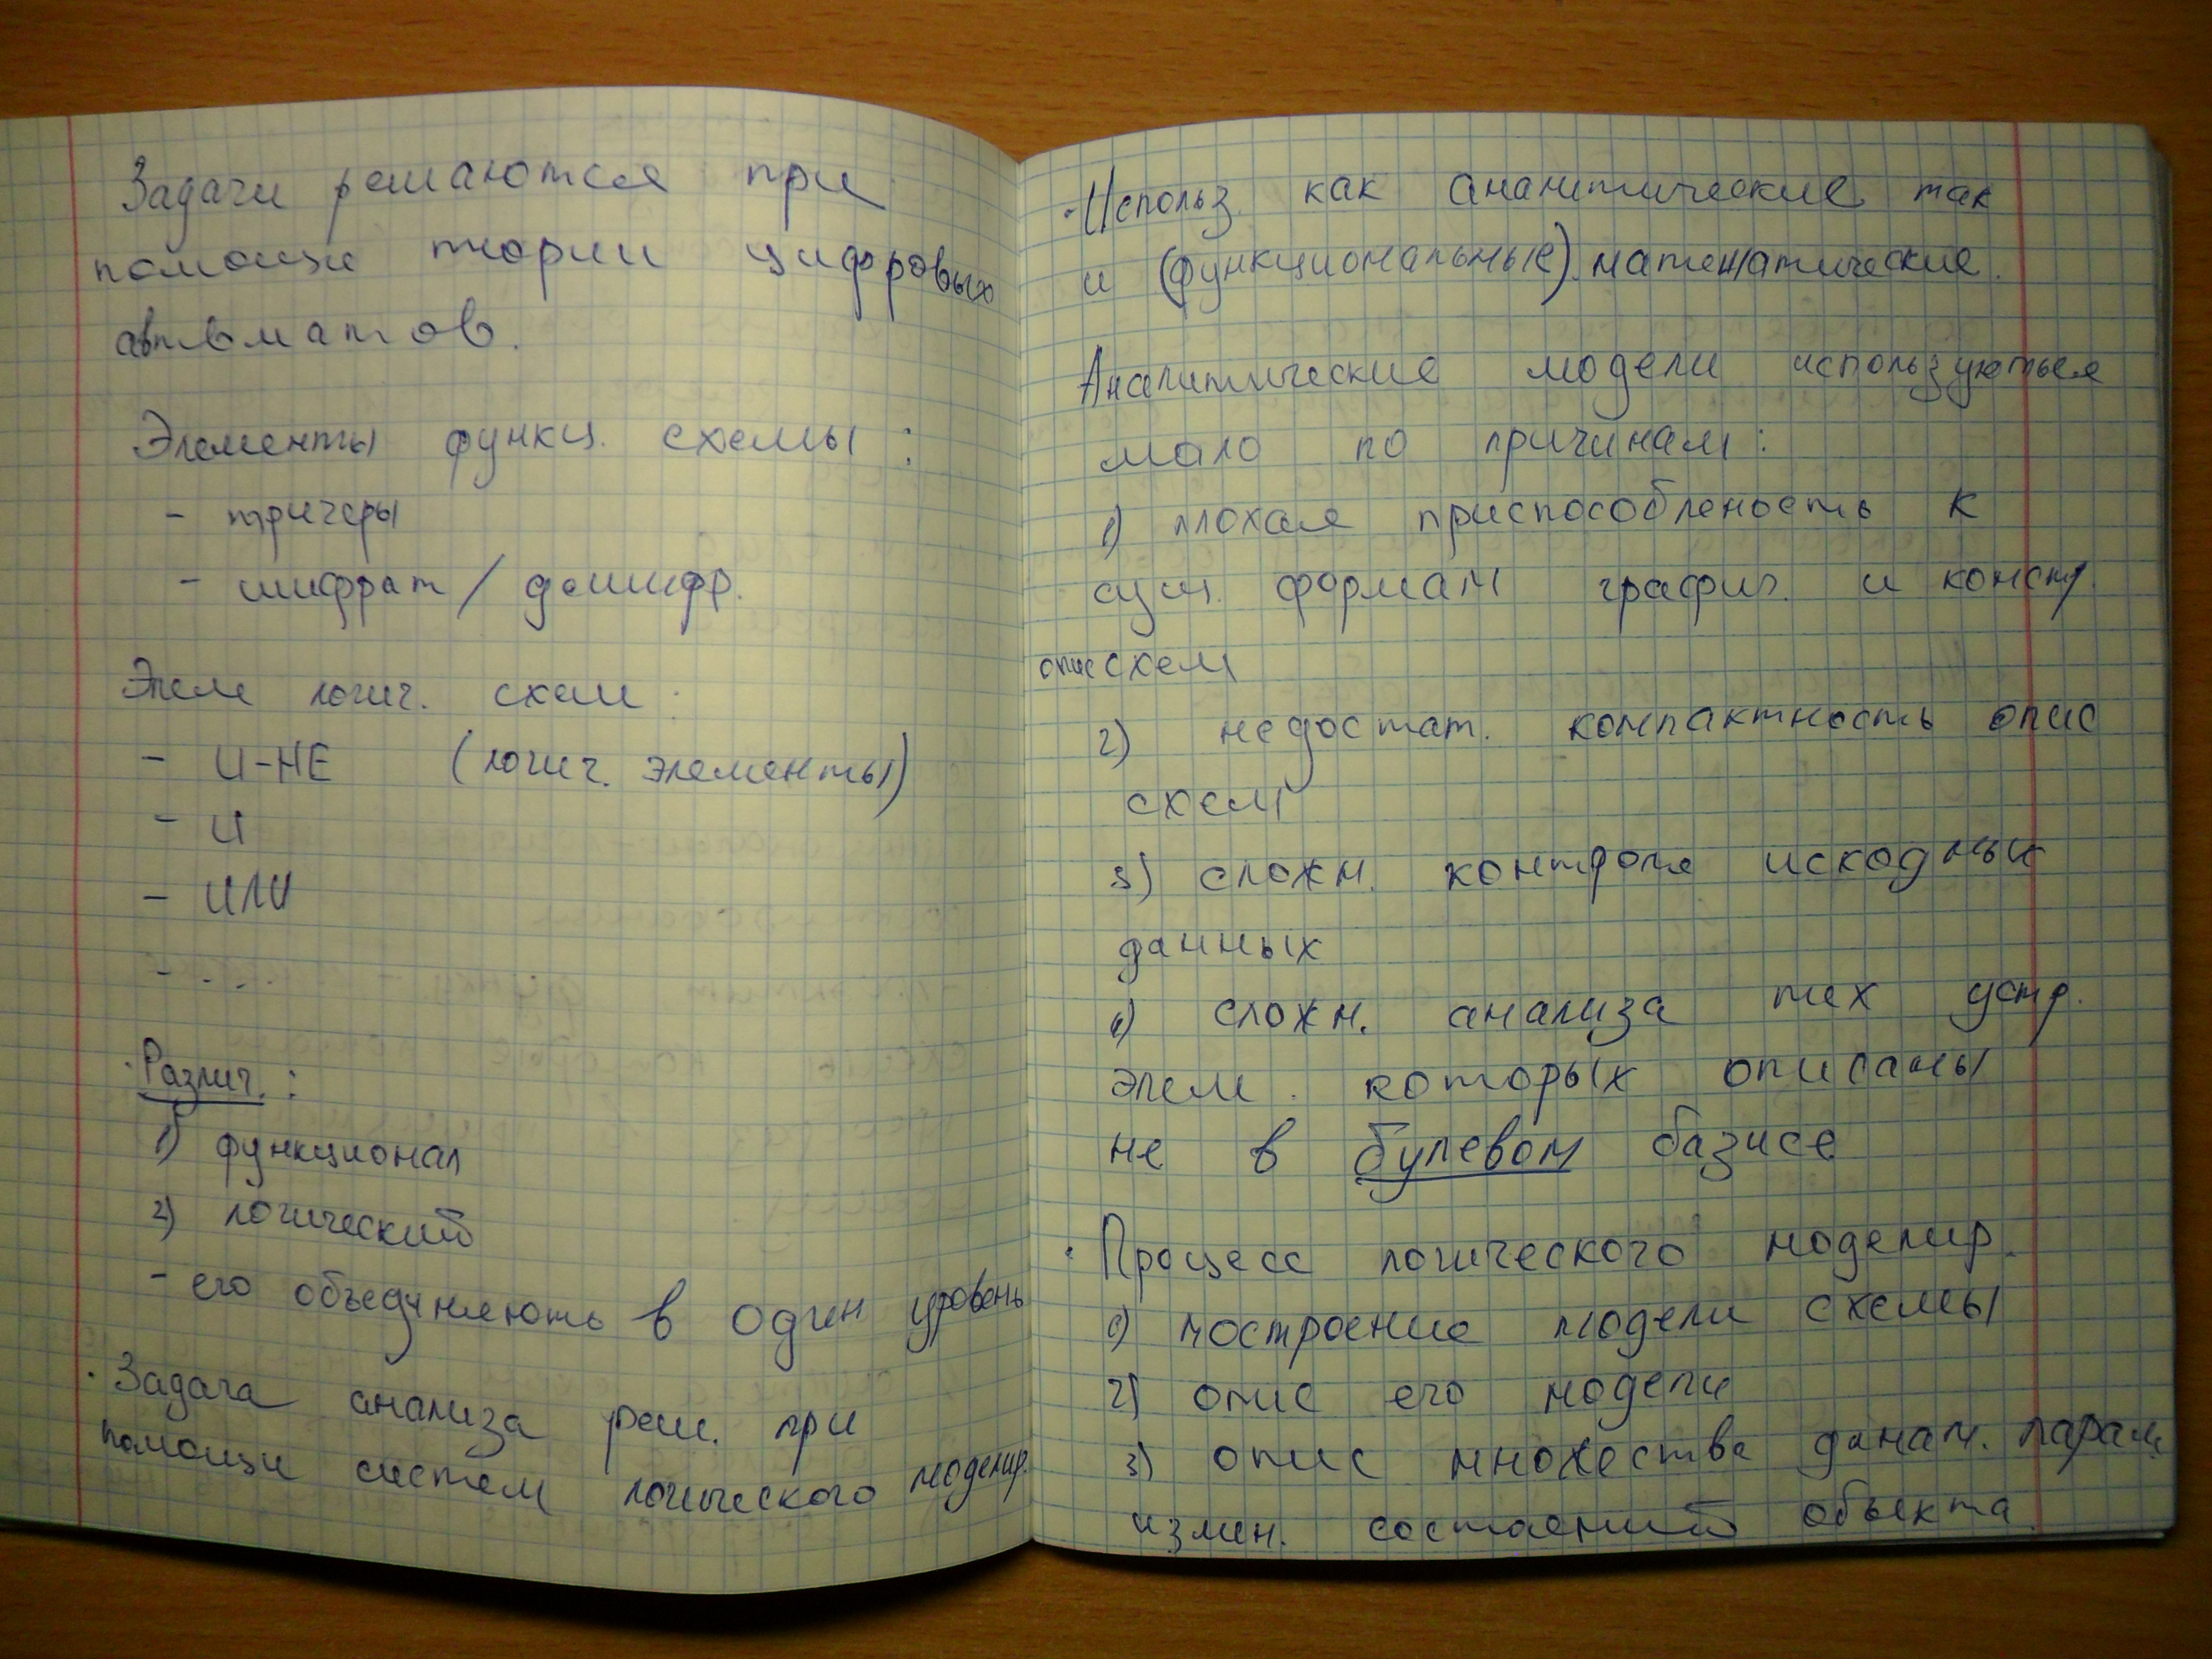 Задачи решаются при
помощи теории цифровых
автоматов.
Элементы функц. схемы :
- тригеры
- шифрат / дешифр.
Элем логич. схем :
- И-НЕ (логич. элементы)
- И
- ИЛИ
- . . . .
· Различ. :
1) функционал
2) логический
- его объединяють в один уровень
· Задача анализа реш. при
помощи систем логического моделир.
· Использ. как аналитические так
и (функциональные) математические.
Аналитические модели используються
мало по причинам :
1) плохая приспособленость к
сущ. формам графич. и констр.
опис схем
2) недостат. компактность опис
схем
3) сложн. контроля исходных
данных
4) сложн. анализа тех устр.
элем. которых описаны
не в булевом базисе
· Процесс логического моделир.
1) построение модели схемы
2) опис его модели
3) опис множества динам. парам.
измен. состояний объекта